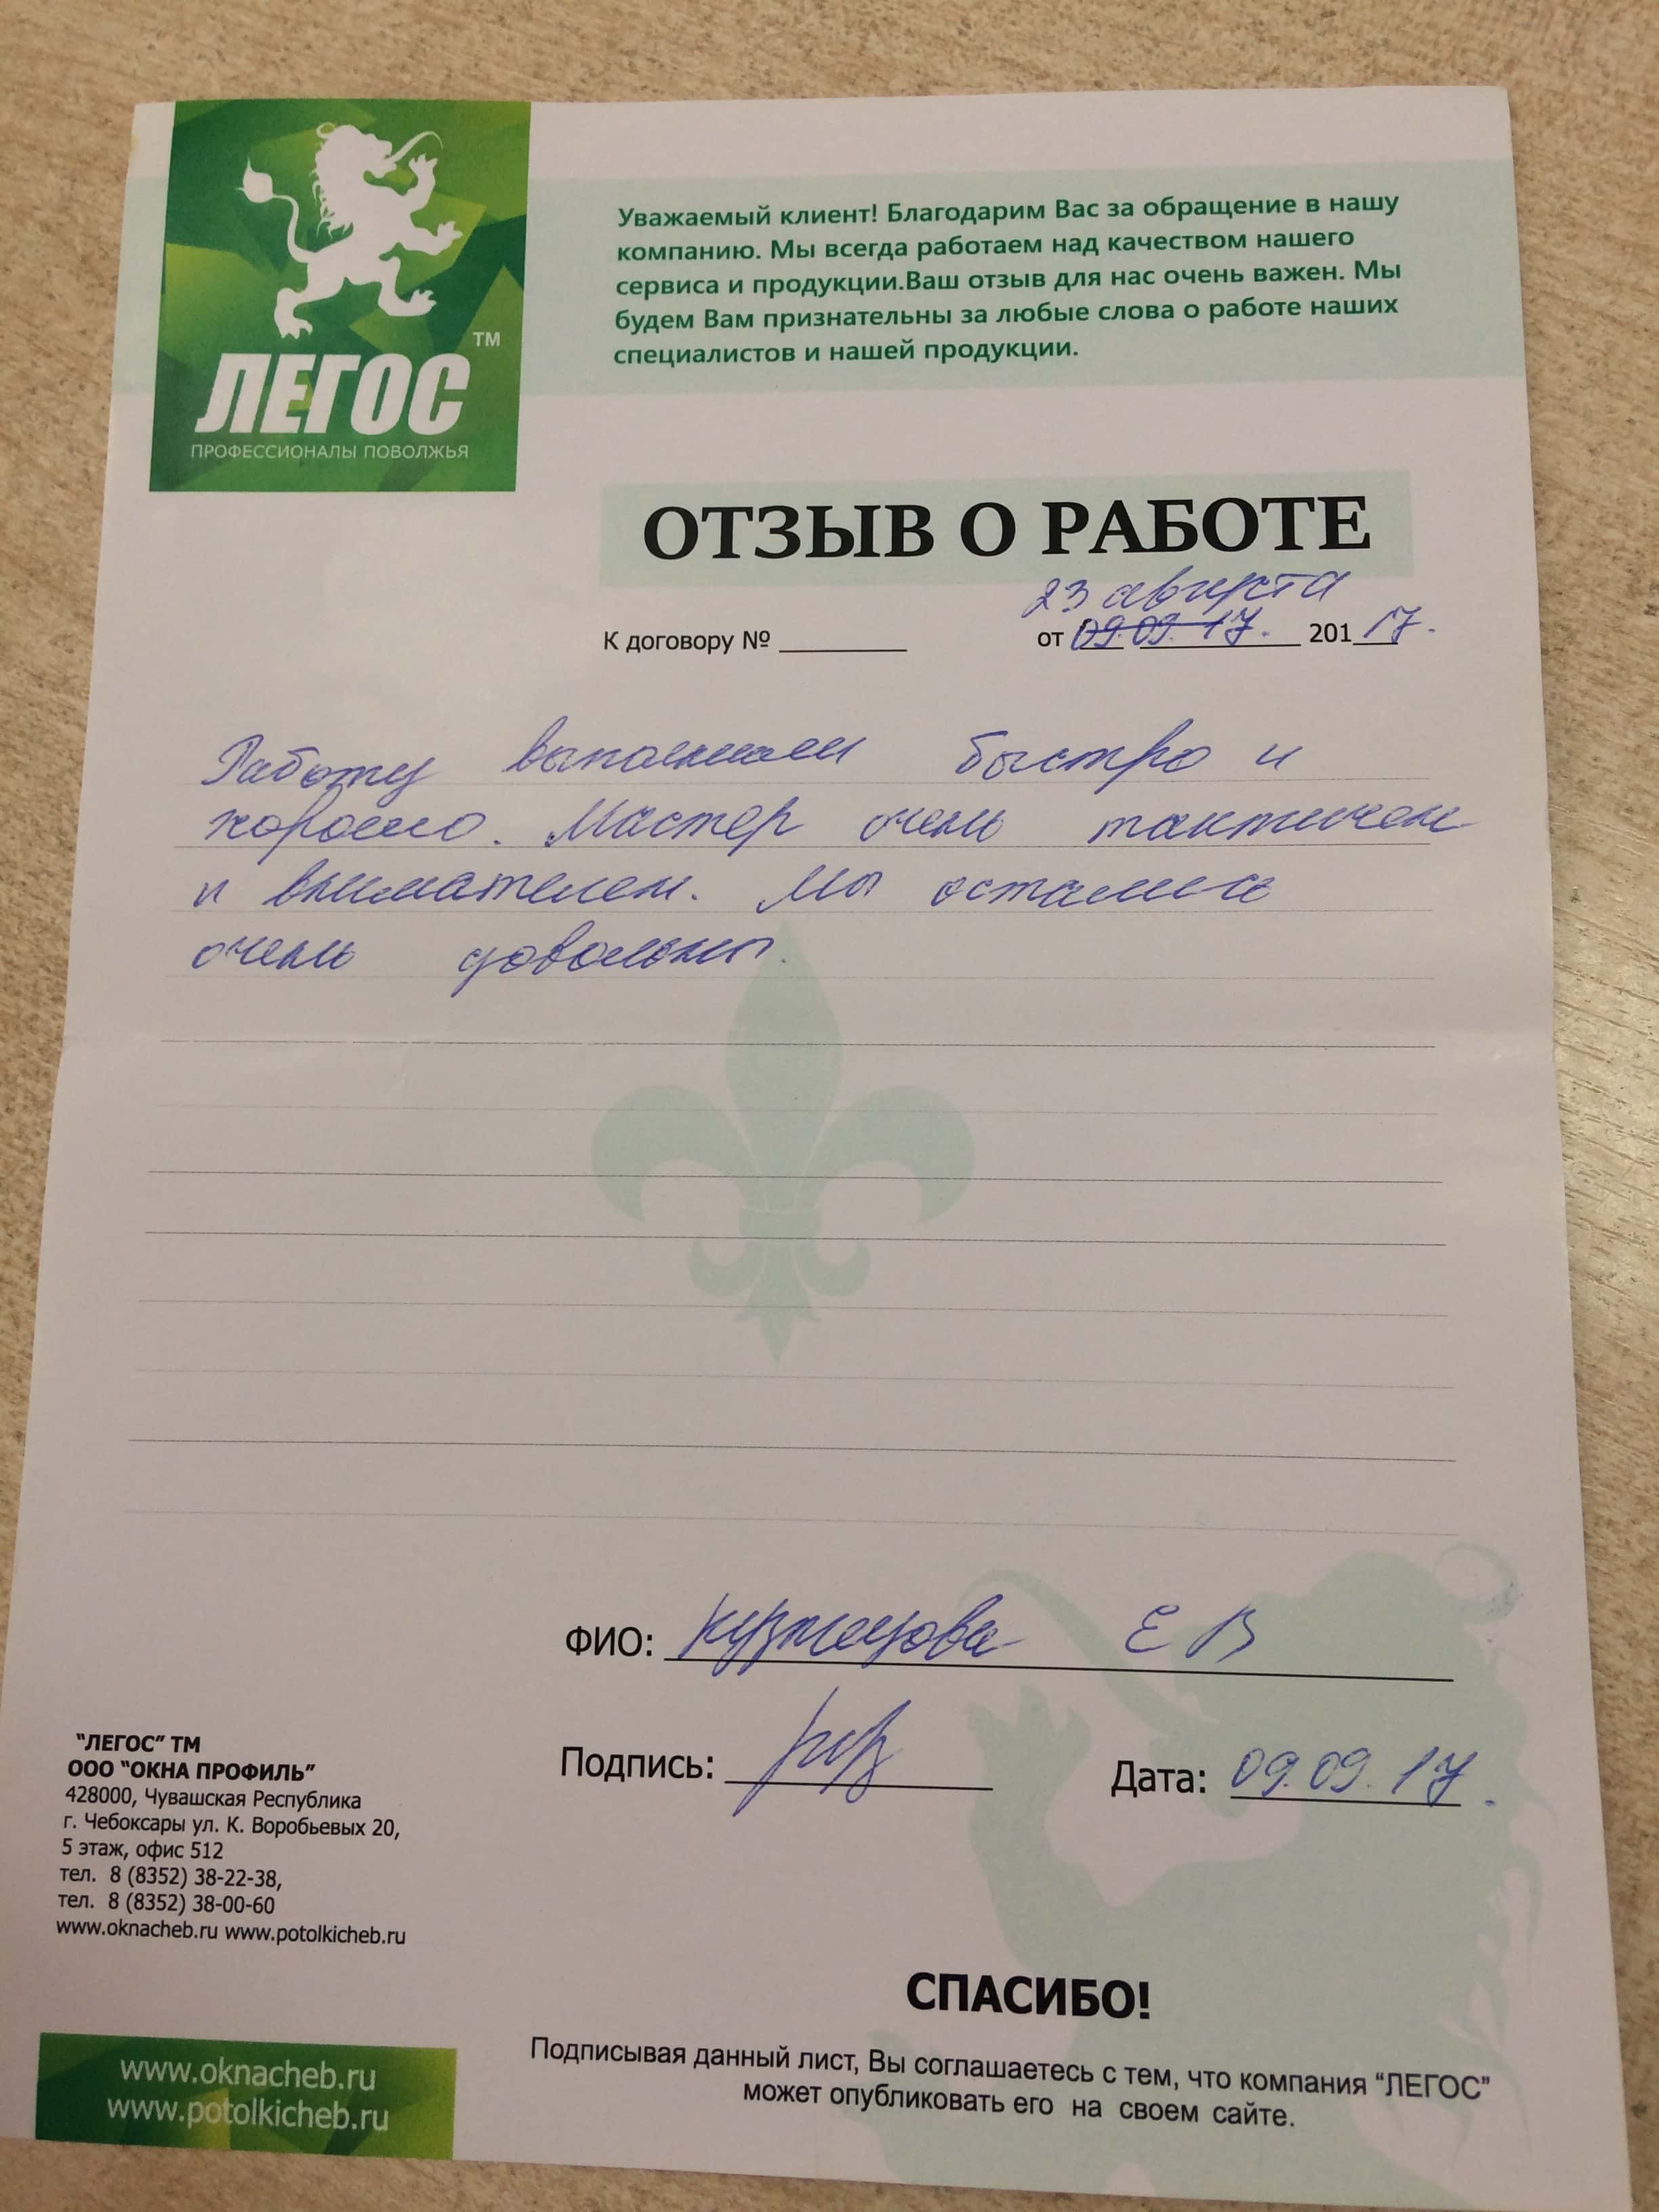 ЛЕГОС ТМ
ПРОФЕССИОНАЛЫ ПОВОЛЖЬЯ
Уважаемый клиент! Благодарим Вас за обращение в нашу
компанию. Мы всегда работаем над качеством нашего
сервиса и продукции.Ваш отзыв для нас очень важен. Мы
будем Вам признательны за любые слова о работе наших
специалистов и нашей продукции.
ОТЗЫВ О РАБОТЕ
23 августа
К договору № от 09.09.17. 2017.
Работу выполнили быстро и
хорошо. Мастер очень тактичен
и внимателен. Мы остались
очень довольны.
ФИО: Е В
Подпись: Дата: 09.09.17.
"ЛЕГОС" ТМ
ООО "ОКНА ПРОФИЛЬ"
428000, Чувашская Республика
г. Чебоксары ул. К. Воробьевых 20,
5 этаж, офис 512
тел. 8 (8352) 38-22-38,
тел. 8 (8352) 38-00-60
www.oknacheb.ru www.potolkicheb.ru
СПАСИБО!
Подписывая данный лист, Вы соглашаетесь с тем, что компания "ЛЕГОС"
может опубликовать его на своем сайте.
www.oknacheb.ru
www.potolkicheb.ru